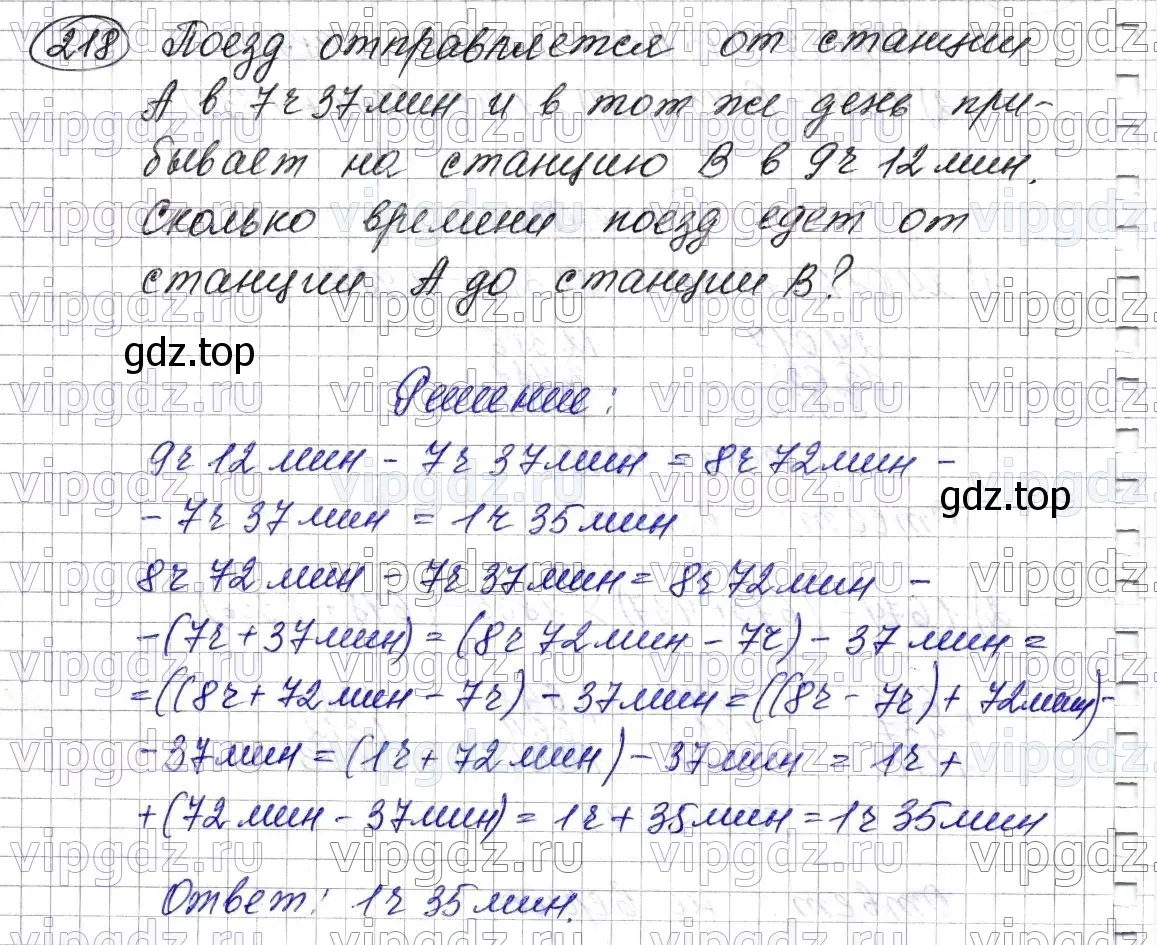 218 Поезд отправляется от станции
А в 7ч 37мин и в тот же день при-
бывает на станцию В в 9ч 12мин.
Сколько времени поезд едет от
станции А до станции В?
gdz.top
Решение:
9ч 12мин - 7ч 37мин = 8ч 72мин -
gdz.top
- 7ч 37мин = 1ч 35мин
8ч 72мин - 7ч 37мин = 8ч 72мин -
-(7ч + 37мин) = (8ч 72мин - 7ч) - 37мин =
=((8ч + 72мин - 7ч) - 37мин = ((8ч - 7ч) + 72мин) -
- 37мин = (1ч + 72мин) - 37мин = 1ч +
+ (72мин - 37мин) = 1ч + 35мин = 1ч 35мин
Ответ: 1ч 35мин.
vipgdz.ru